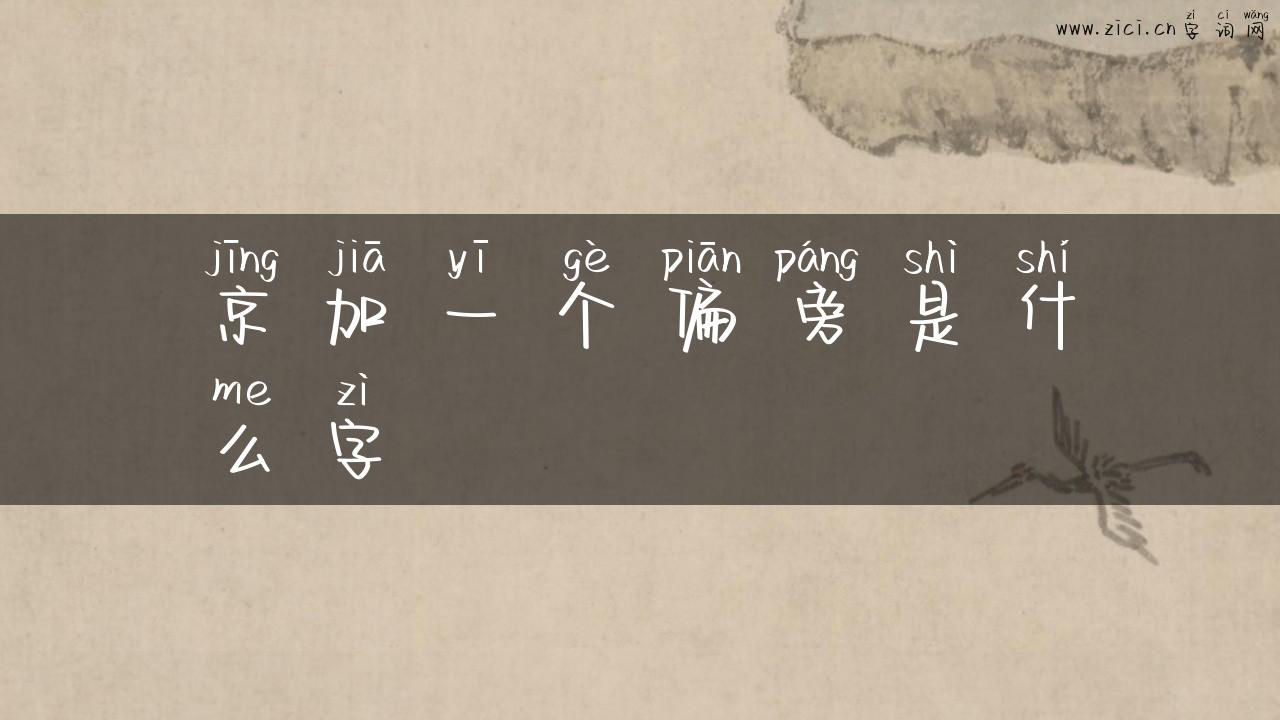 zì cí wǎng
www.zici.cn 字词网
jīng jiā yī gè piān páng shì shí
京加一个偏旁是什
me zì
么字